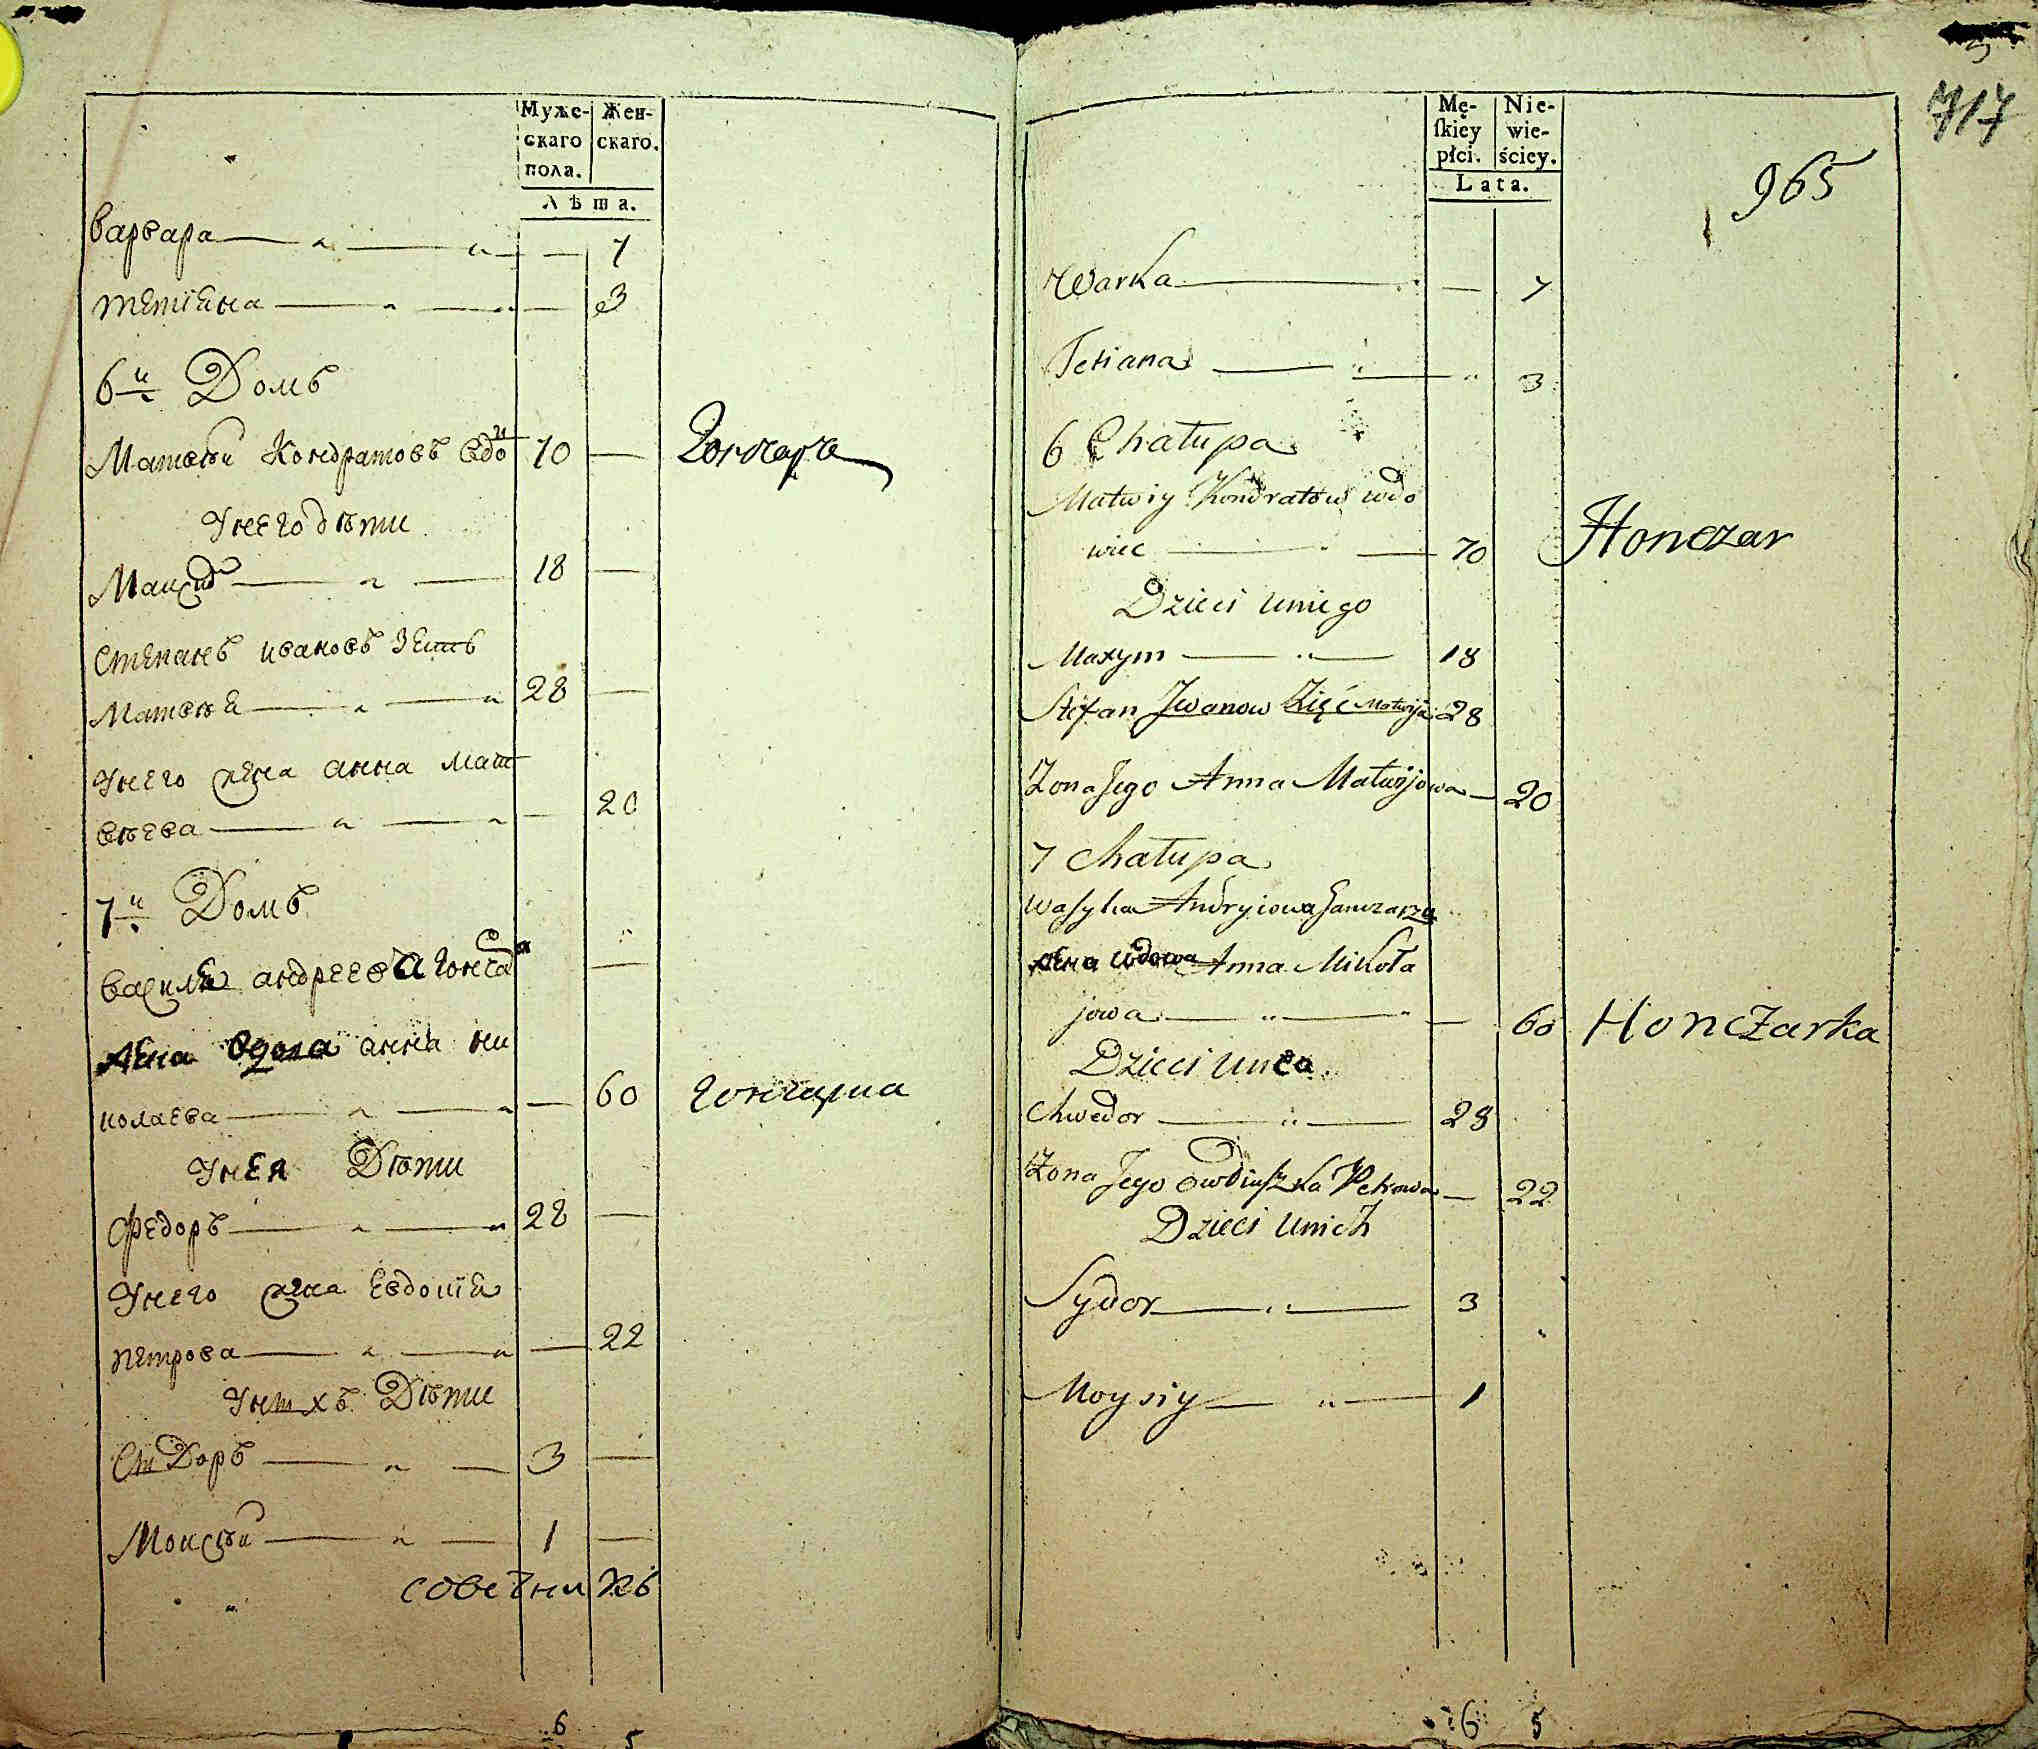 Муже-
скаго
пола.
Жен-
скаго.
Лѣта.
варвара 7
тетіана 3
6й Домъ
Матвѣй Кондратовъ вдо 70 Гончаръ
Унего дѣти
Максим 18
Степанъ ивановъ зеть
Матвѣя 28
Унего жена анна мат
вѣева 20
7й Домъ
василя андреева гонча
жена вдова анна ни
колаева 60 гончарка
Унея Дѣти
Федоръ 28
Унего жена Евдокіа
петрова 22
Унихъ Дѣти
Сидоръ 3
Моисѣй 1
советникъ
6 5
717
965
Mę-
ſkiey
płci.
Nie-
wie-
ściey.
Lata.
Warka 7
Tetiana 3
6 Chałupa
Matwiy Kondratow wdo
wiec 70 Honczar
Dzieci uniego
Maxym 18
Stefan Jwanow Zięć Matwija 28
Zona Jego Anna Matwijowa 20
7 Chałupa
Wasyla Andryiowa Ganczarza
жена wdowa Anna Mikoła
jowa 60 Honczarka
Dzieci unea
Chwedor 28
Zona Jego Owdiuszka Petrowa 22
Dzieci unich
Sydor 3
Moysiy 1
6 5